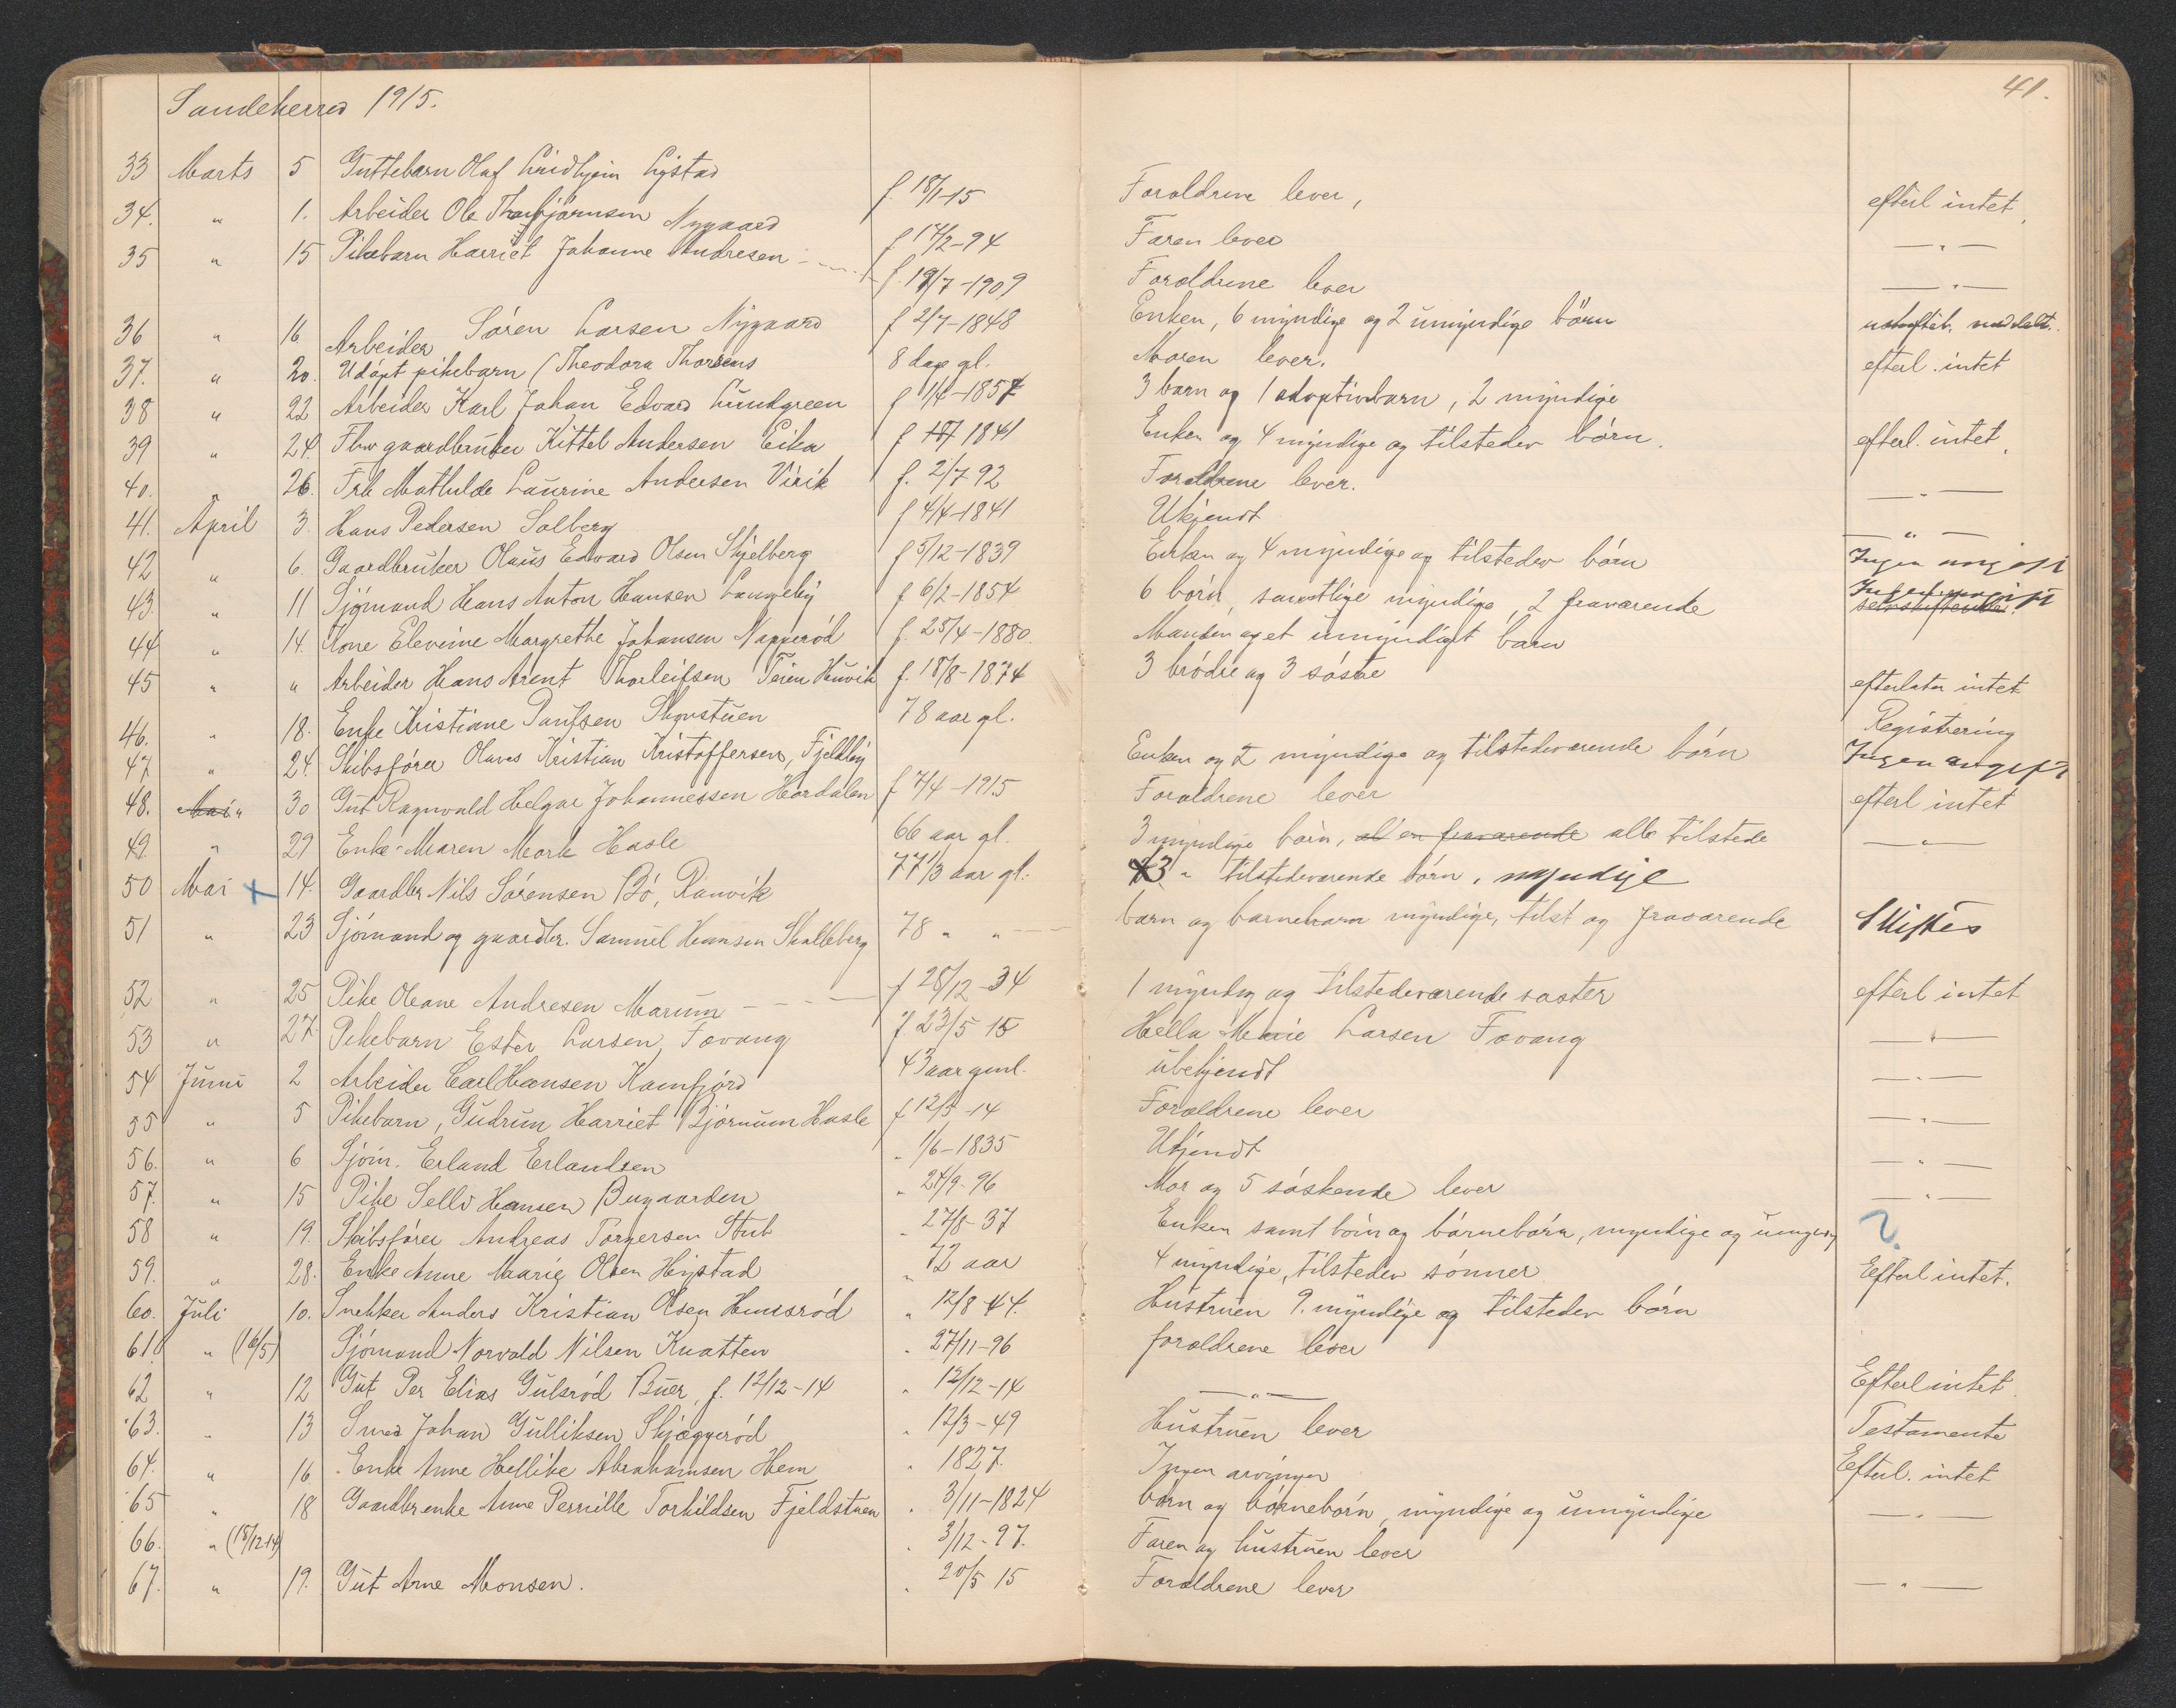 Sandeherred 1915.
41.
33 Marts 5 Guttebarn Olaf Lindhjem Lystad f. 18/1-15 Forældrene lever, efterl intet
34. " 1. Arbeider Ole Thorbjørnsen Nygaard f 14/2-94 Faren lever — " —
35 " 15 Pikebarn Harriet Johanne Andresen f. 19/7-1909 Forældrene lever — " —
36 " 16 Arbeider Sören Larsen Nygaard f 2/7-1848 Enken, 6 myndige og 2 umyndige börn
37. " 20. Udöpt pikebarn (Theodora Thorsens 8 dage gl. Moren lever. efterl. intet
38 " 22 Arbeider Karl Johan Edvard Lundgreen f 1/4-1857 3 barn og 1 adoptivbarn, 2 myndige
39 " 24. Fhv gaardbruker Kittel Andersen Eika f 1841 Enken og 4 myndige og tilstedev börn. efterl. intet
40. " 26. Frk Mathilde Laurine Andersen Virik f. 2/7 92 Forældrene lever. — " —
41. April 3. Hans Pedersen Solberg f 4/4-1841 Ukjendt — " —
42 " 6. Gaardbruker Olaus Edvard Olsen Skjelberg f 5/12-1839 Enken og 4 myndige og tilstedev börn Ingen avgift
43. " 11 Sjömand Hans Anton Hansen Langeby f 6/2-1854 6 börn, samtlige myndige, 2 fraværende Ingen avgift selvskiftende.
44 " 14. Kone Elevine Margrethe Johansen Napperöd f. 25/4-1880. Manden og et umyndigt barn
45 " " Arbeider Hans Arent Thorleifsen Teien Huvik f. 18/8-1874 3 brödre og 3 söstre efterlater intet
46. " 18. Enke Kristiane Paulsen Skovstuen 78 aar gl. Registrering
47 " 24. Skibsförer Olaves Kristian Kristoffersen, Fjeldby Enken og 2 myndige og tilstedeværende börn Ingen avgift
48. Mai " 30 Gut Ragnvald Helgar Johannessen Hørdalen f 7/4-1915 Forældrene lever efterl intet
49. " 29 Enke Maren Mork Hasle 66 aar gl. 3 myndige börn, al en fraværende alle tilstede — " —
50 Mai + 14. Gaardbr Nils Sörensen Bö, Ranvik 77 1/3 aar gl. 3 " tilstedeværende börn, myndige
51 " 23 Sjömand og gaardbr. Samuel Hansen Skalleberg 78 " " barn og barnebarn myndige, tilst og fraværende Skiftes
52 " 25 Pike Oleane Andresen Marum f 28/12-34 1 myndig og tilstedeværende søster efterl intet
53 " 27 Pikebarn Ester Larsen, Fevang f 23/5 15 Hella Marie Larsen Fevang — " —
54 Juni 2 Arbeider Carl Hansen Kamfjord 43 aar gml. ubekjendt — " —
55 " 5 Pikebarn, Gudrun Harriet Bjørnum Hasle f 12/5-14 Forældrene lever — " —
56. " 6 Sjöm. Erland Erlandsen " 1/6-1835 Ukjendt — " —
57. " 15 Pike Selly Hansen Bugaarden " 24/9-96 Mor og 5 söskende lever — " —
58 " 19. Skibsförer Andreas Torgersen Stub " 27/8-37 Enken samt börn og börnebörn, myndige og umynd ?
59. " 28. Enke Anne Marie Olsen Hystad " 72 aar 4 myndige, tilstedev sönner Efterl intet.
60. Juli 10. Snekker Anders Kristian Olsen Haukeröd " 12/8-44. Hustruen 9. myndige og tilstedev börn
61. " (16/5) Sjömand Norvald Nilsen Knatten " 27/11-96 forældrene lever
62 " 12 Gut Per Elias Gulsröd Buer, f. 12/12-14 " 12/12-14 — " — Efterl intet
63. " 13 Smed Johan Gulliksen Skjæggeröd " 12/3-49 Hustruen lever Testamente
64. " 16 Enke Anne Hellike Abrahamsen Hem " 1827. Ingen arvinger Efterl. intet
65 " 18 Gaardbrenke Anne Pernille Torkildsen Fjeldstuen " 3/11-1824 børn og börnebörn, myndige og umyndige — " —
66. " (18/12-14) " 3/12-97. Faren og hustruen lever
67. " 19. Gut Arne Monsen. " 20/5 15 Forældrene lever — " —